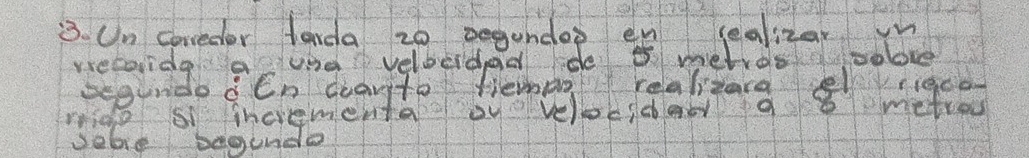 3. Un corredor tarda 20 segundos en realizar un
recorrido a una velocidad de 5 metros sobre
segundo ¿En cuanto tiempo realizara el reco-
rrido si incrementa su velocidad a 8 metros
sobre segundo